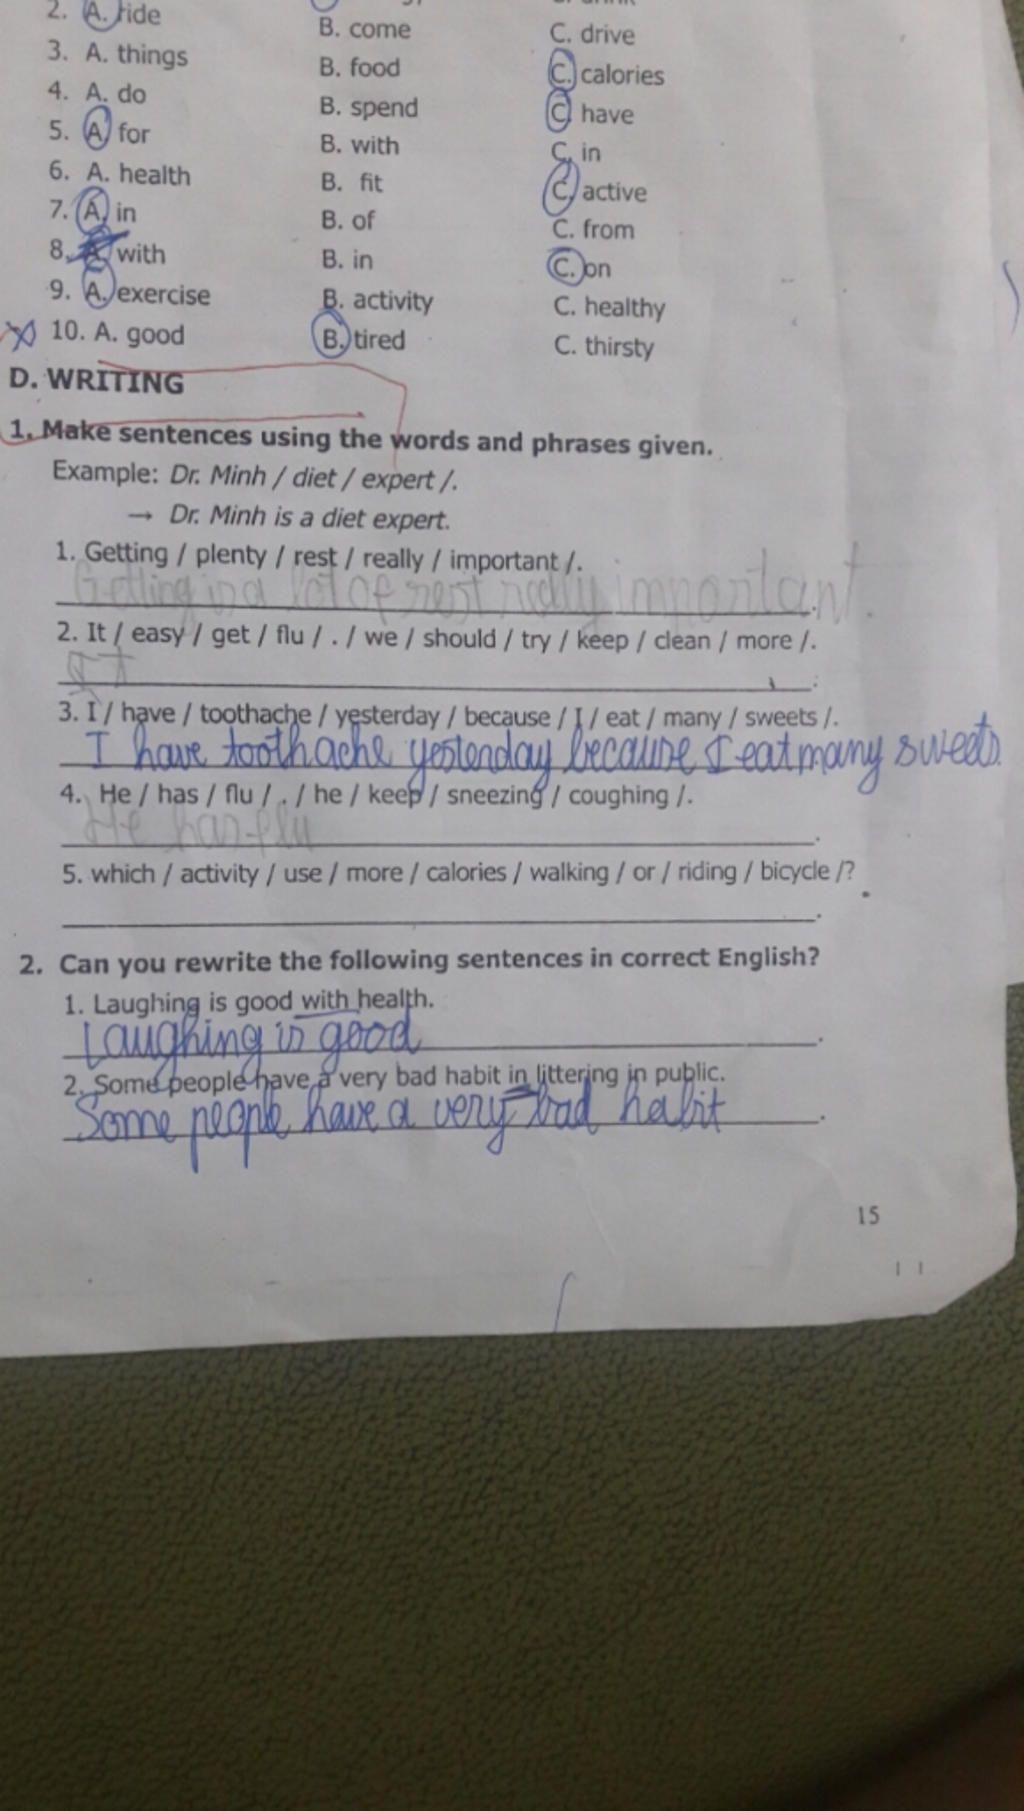 2. A. ride B. come C. drive
3. A. things B. food C. calories
4. A. do B. spend C. have
5. A. for B. with C. in
6. A. health B. fit C. active
7. A. in B. of C. from
8. A. with B. in C. on
9. A. exercise B. activity C. healthy
10. A. good B. tired C. thirsty
D. WRITING
1. Make sentences using the words and phrases given.
Example: Dr. Minh / diet / expert /.
→ Dr. Minh is a diet expert.
1. Getting / plenty / rest / really / important /.
Getting is a lot of rest really important.
2. It / easy / get / flu / . / we / should / try / keep / clean / more /.
It
3. I / have / toothache / yesterday / because / I / eat / many / sweets /.
I have toothache yesterday because I eat many sweets.
4. He / has / flu / . / he / keep / sneezing / coughing /.
He has flu
5. which / activity / use / more / calories / walking / or / riding / bicycle /?
2. Can you rewrite the following sentences in correct English?
1. Laughing is good with health.
Laughing is good
2. Some people have a very bad habit in littering in public.
Some people have a very bad habit
15